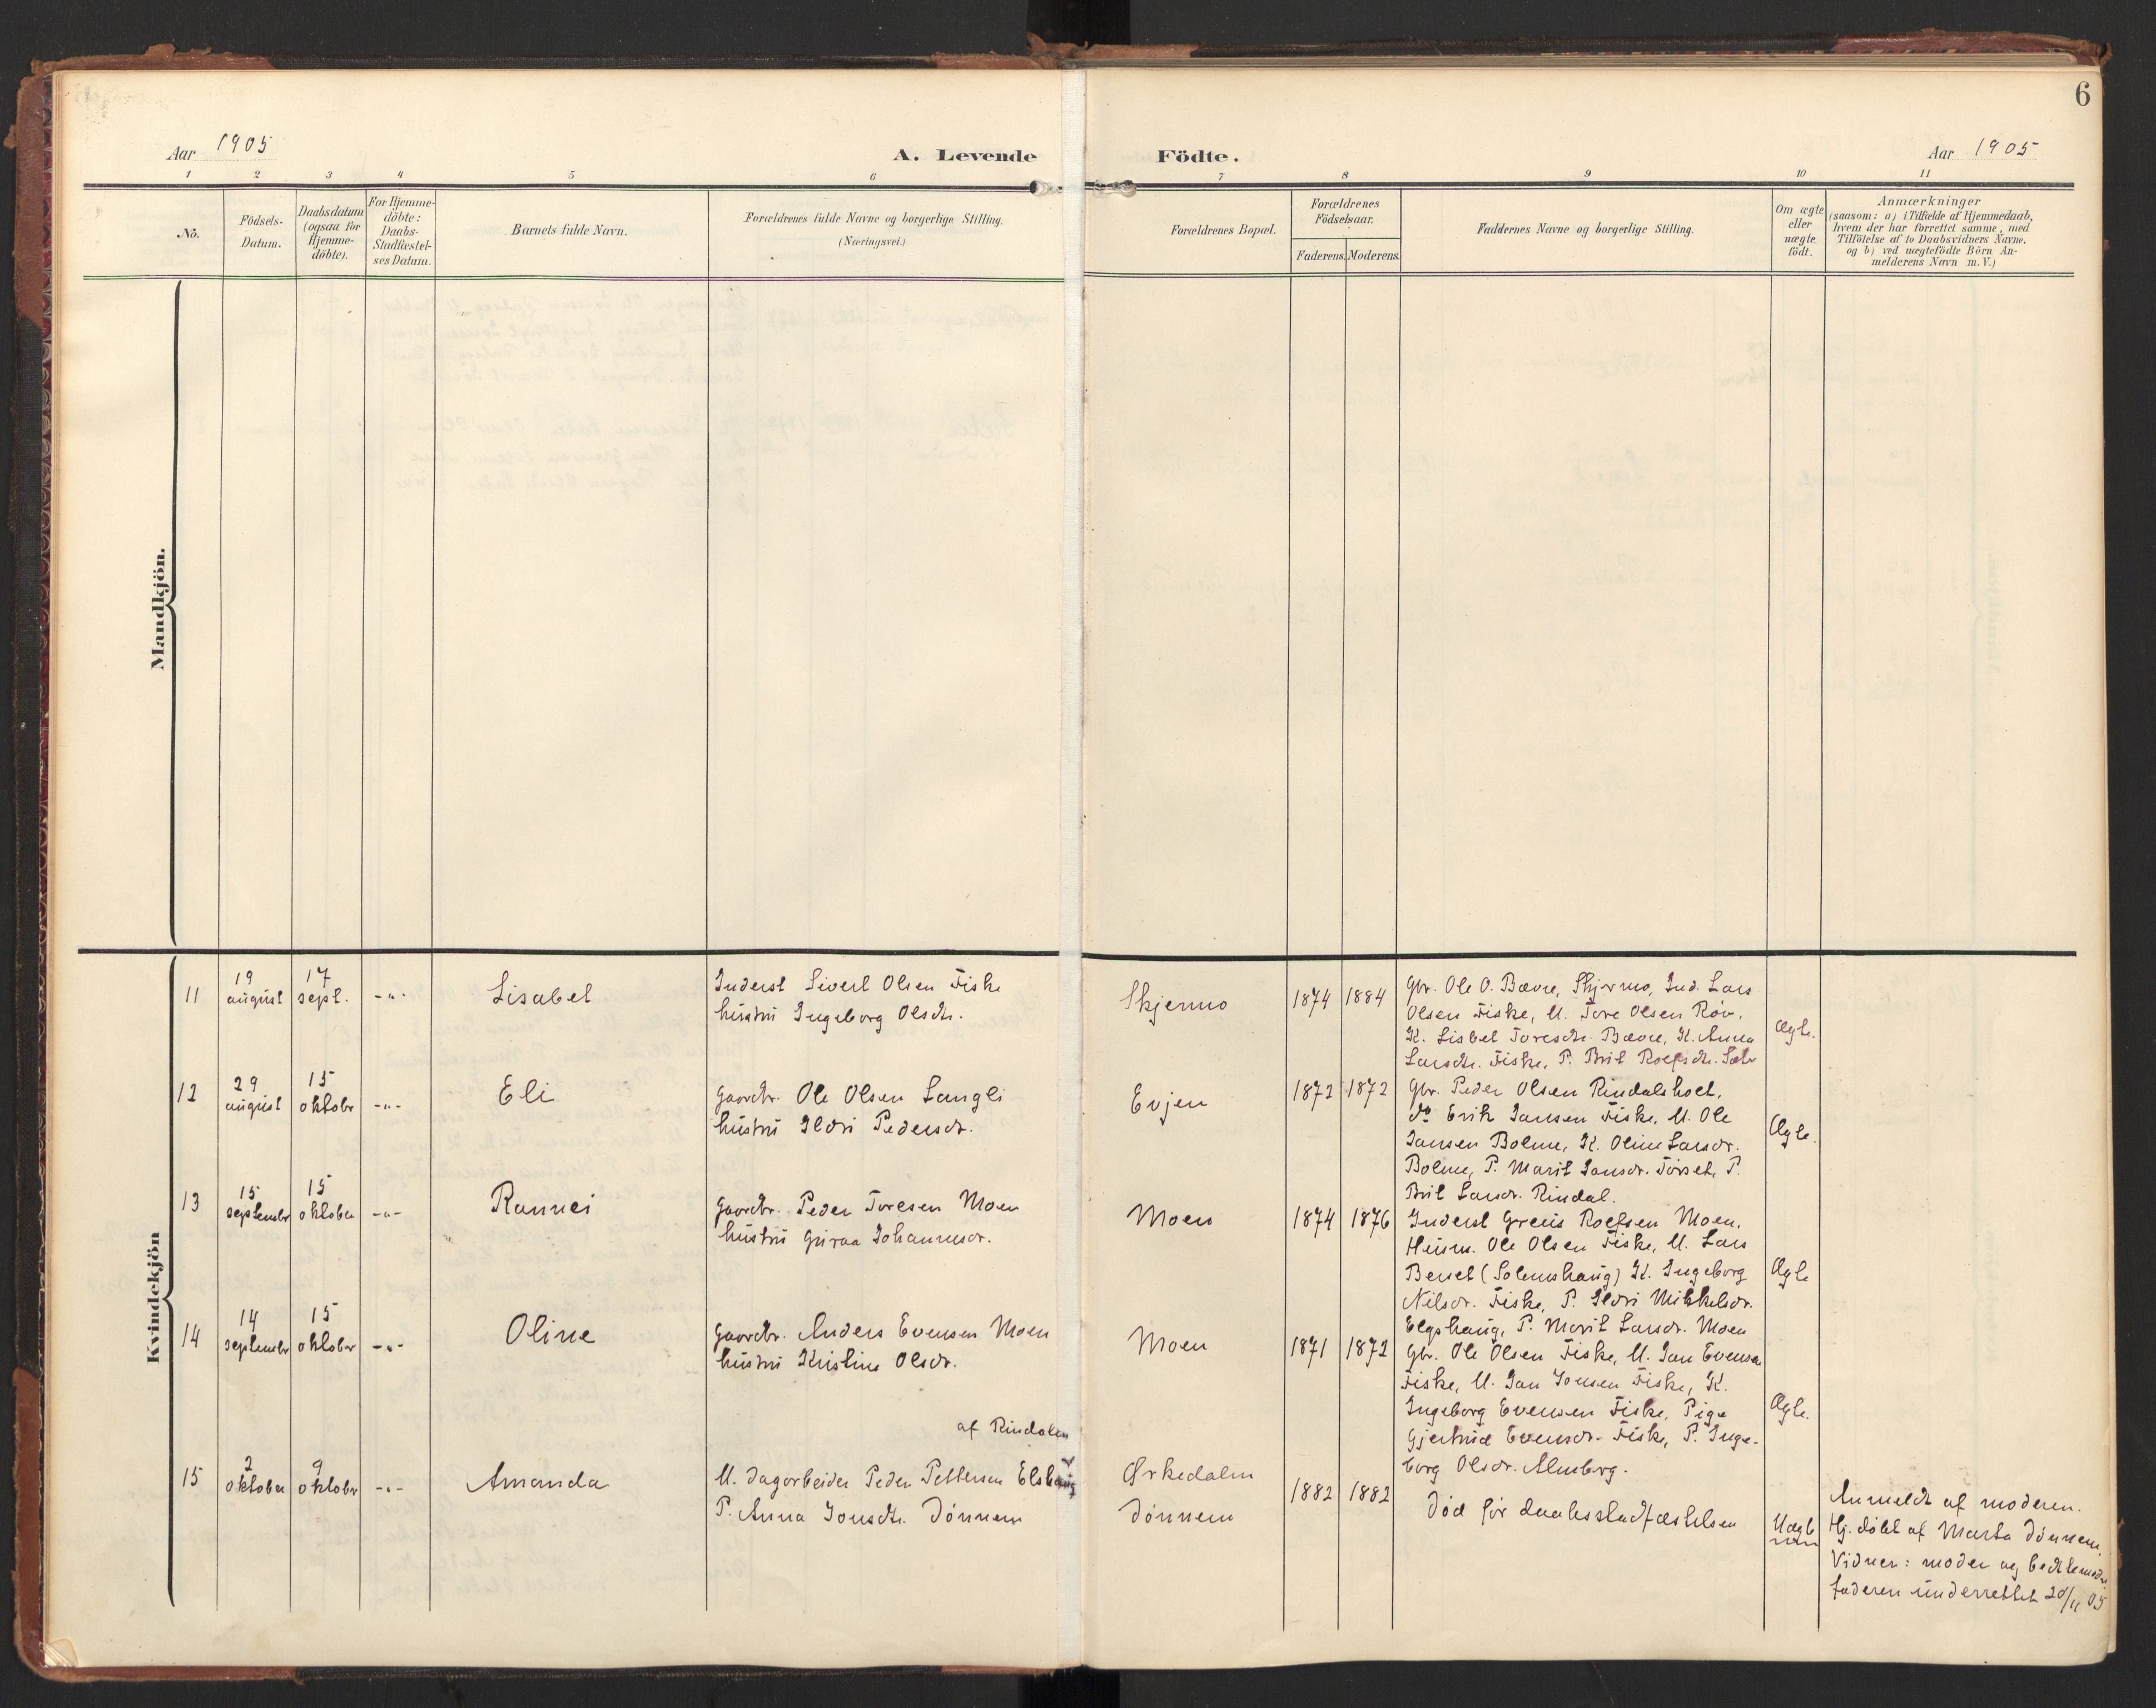 6
Aar 1905
A. Levende Födte.
Aar 1905
1 2 3 4 5 6 7 8 9 10 11
No.
Födsels-
Datum.
Daabsdatum
(ogsaa for
Hjemme-
döbte).
For Hjemme-
döbte:
Daabs-
Stadfæstel-
ses Datum.
Barnets fulde Navn.
Forældrenes fulde Navne og borgerlige Stilling.
(Næringsvei.)
Forældrenes Bopæl.
Forældrenes
Födselsaar.
Faderens. Moderens.
Faddernes Navne og borgerlige Stilling.
Om ægte
eller
uægte
födt.
Anmærkninger
(saasom: a) i Tilfælde af Hjemmedaab,
hvem der har forrettet samme, med
Tilföielse af to Daabsvidners Navne,
og b) ved uægtefödte Börn An-
melderens Navn m. V.)
Mandkjön.
Kvindekjön
11
19
august
17
sept.
-"-
Lisabet
Inderst Sivert Olsen Fiske
hustru Ingeborg Olsdtr.
Skjermo
1874 1884
Gbr. Ole O. Bævre, Skjermo, Ind. Lars
Olsen Fiske, U. Tore Olsen Røv,
K. Lisbet Toresdtr. Bævre, K. Anna
Larsdtr. Fiske, P. Brit Roefsdtr.
Ægte.
12
29
august
15
oktobr
-"-
Eli
Gaardbr. Ole Olsen Langli
hustru Ildri Pedersdr.
Evjen
1872 1872
Gbr. Peder Olsen Rindalsholt,
do Erik Jansen Fiske, U. Ole
Jansen Bolme, K. Oline Larsdr.
Bolme, P. Marit Jansdr. Tørset, P.
Brit Larsdr. Rindal.
Ægte.
13
15
septembr
15
oktober
-"-
Rannei
Gaardbr. Peder Toresen Moen
hustru Guraa Johannesdr.
Moen
1874 1876
Inderst Greiis Roefsen Moen,
Husm. Ole Olsen Fiske, U. Lars
Berset (Solemshaug) K. Ingeborg
Nilsdr. Fiske, P. Ildri Mikkelsdr.
Elgshaug, P. Marit Larsdr. Moen
Ægte
14
14
septembr
15
oktober
-"-
Oline
Gaardbr. Anders Evensen Moen
hustru Kristine Olsdr.
Moen
1871 1872
Gbr. Ole Olsen Fiske, U. Jan Evensen
Fiske, U. Jan Jonsen Fiske, K.
Ingeborg Evensen Fiske, Pige
Gjertrud Evensdr. Fiske, P. Inge-
borg Olsdr. Almberg.
Ægte.
15
2
oktober
9
oktobr
-"-
Amanda
af Rindalen
U. Dagarbeider Peder Pettersen Elshaug
P. Anna Jonsdtr. Dønnem
Ørkedalen
Dønnem
1882 1882
Død før daabsstadfæstelsen
Uægte
Anmeldt af moderen.
Hj. døbt af Marta Dønnem.
Vidner: moder og bedstemoder.
faderen underrettet 20/11 05